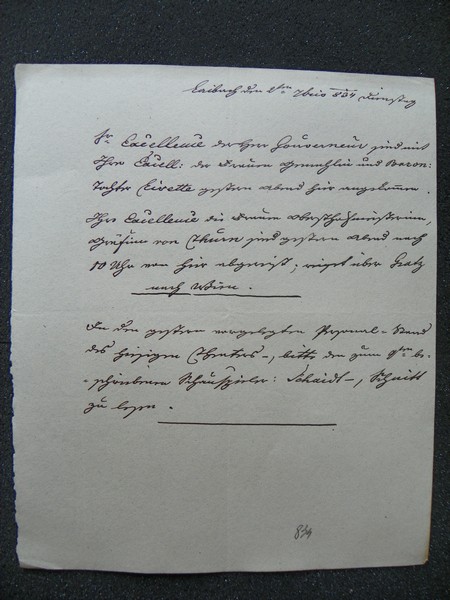 Laibach den 2ten 7bris 834 Dienstag
Sr Excellenz der Herr Gouverneur sind mit
Ihrer Excell: der Frauen Gemahlin und Baron:
tochter Civette gestern Abend hier angekommen.
Ihre Excellenz die Frauen Obersthofmeisterinn,
Gräfinn von Thurn sind gestern Abend nach
10 Uhr von hier abgereist; reist über Gratz
nach Wien.
In den gestern vorgelegten Personal-Stand
des hiesigen Theaters-, bitte den zum 9ten be-
-schriebenen Schauspieler: Schmidt-, Schnitt
zu lesen.
834